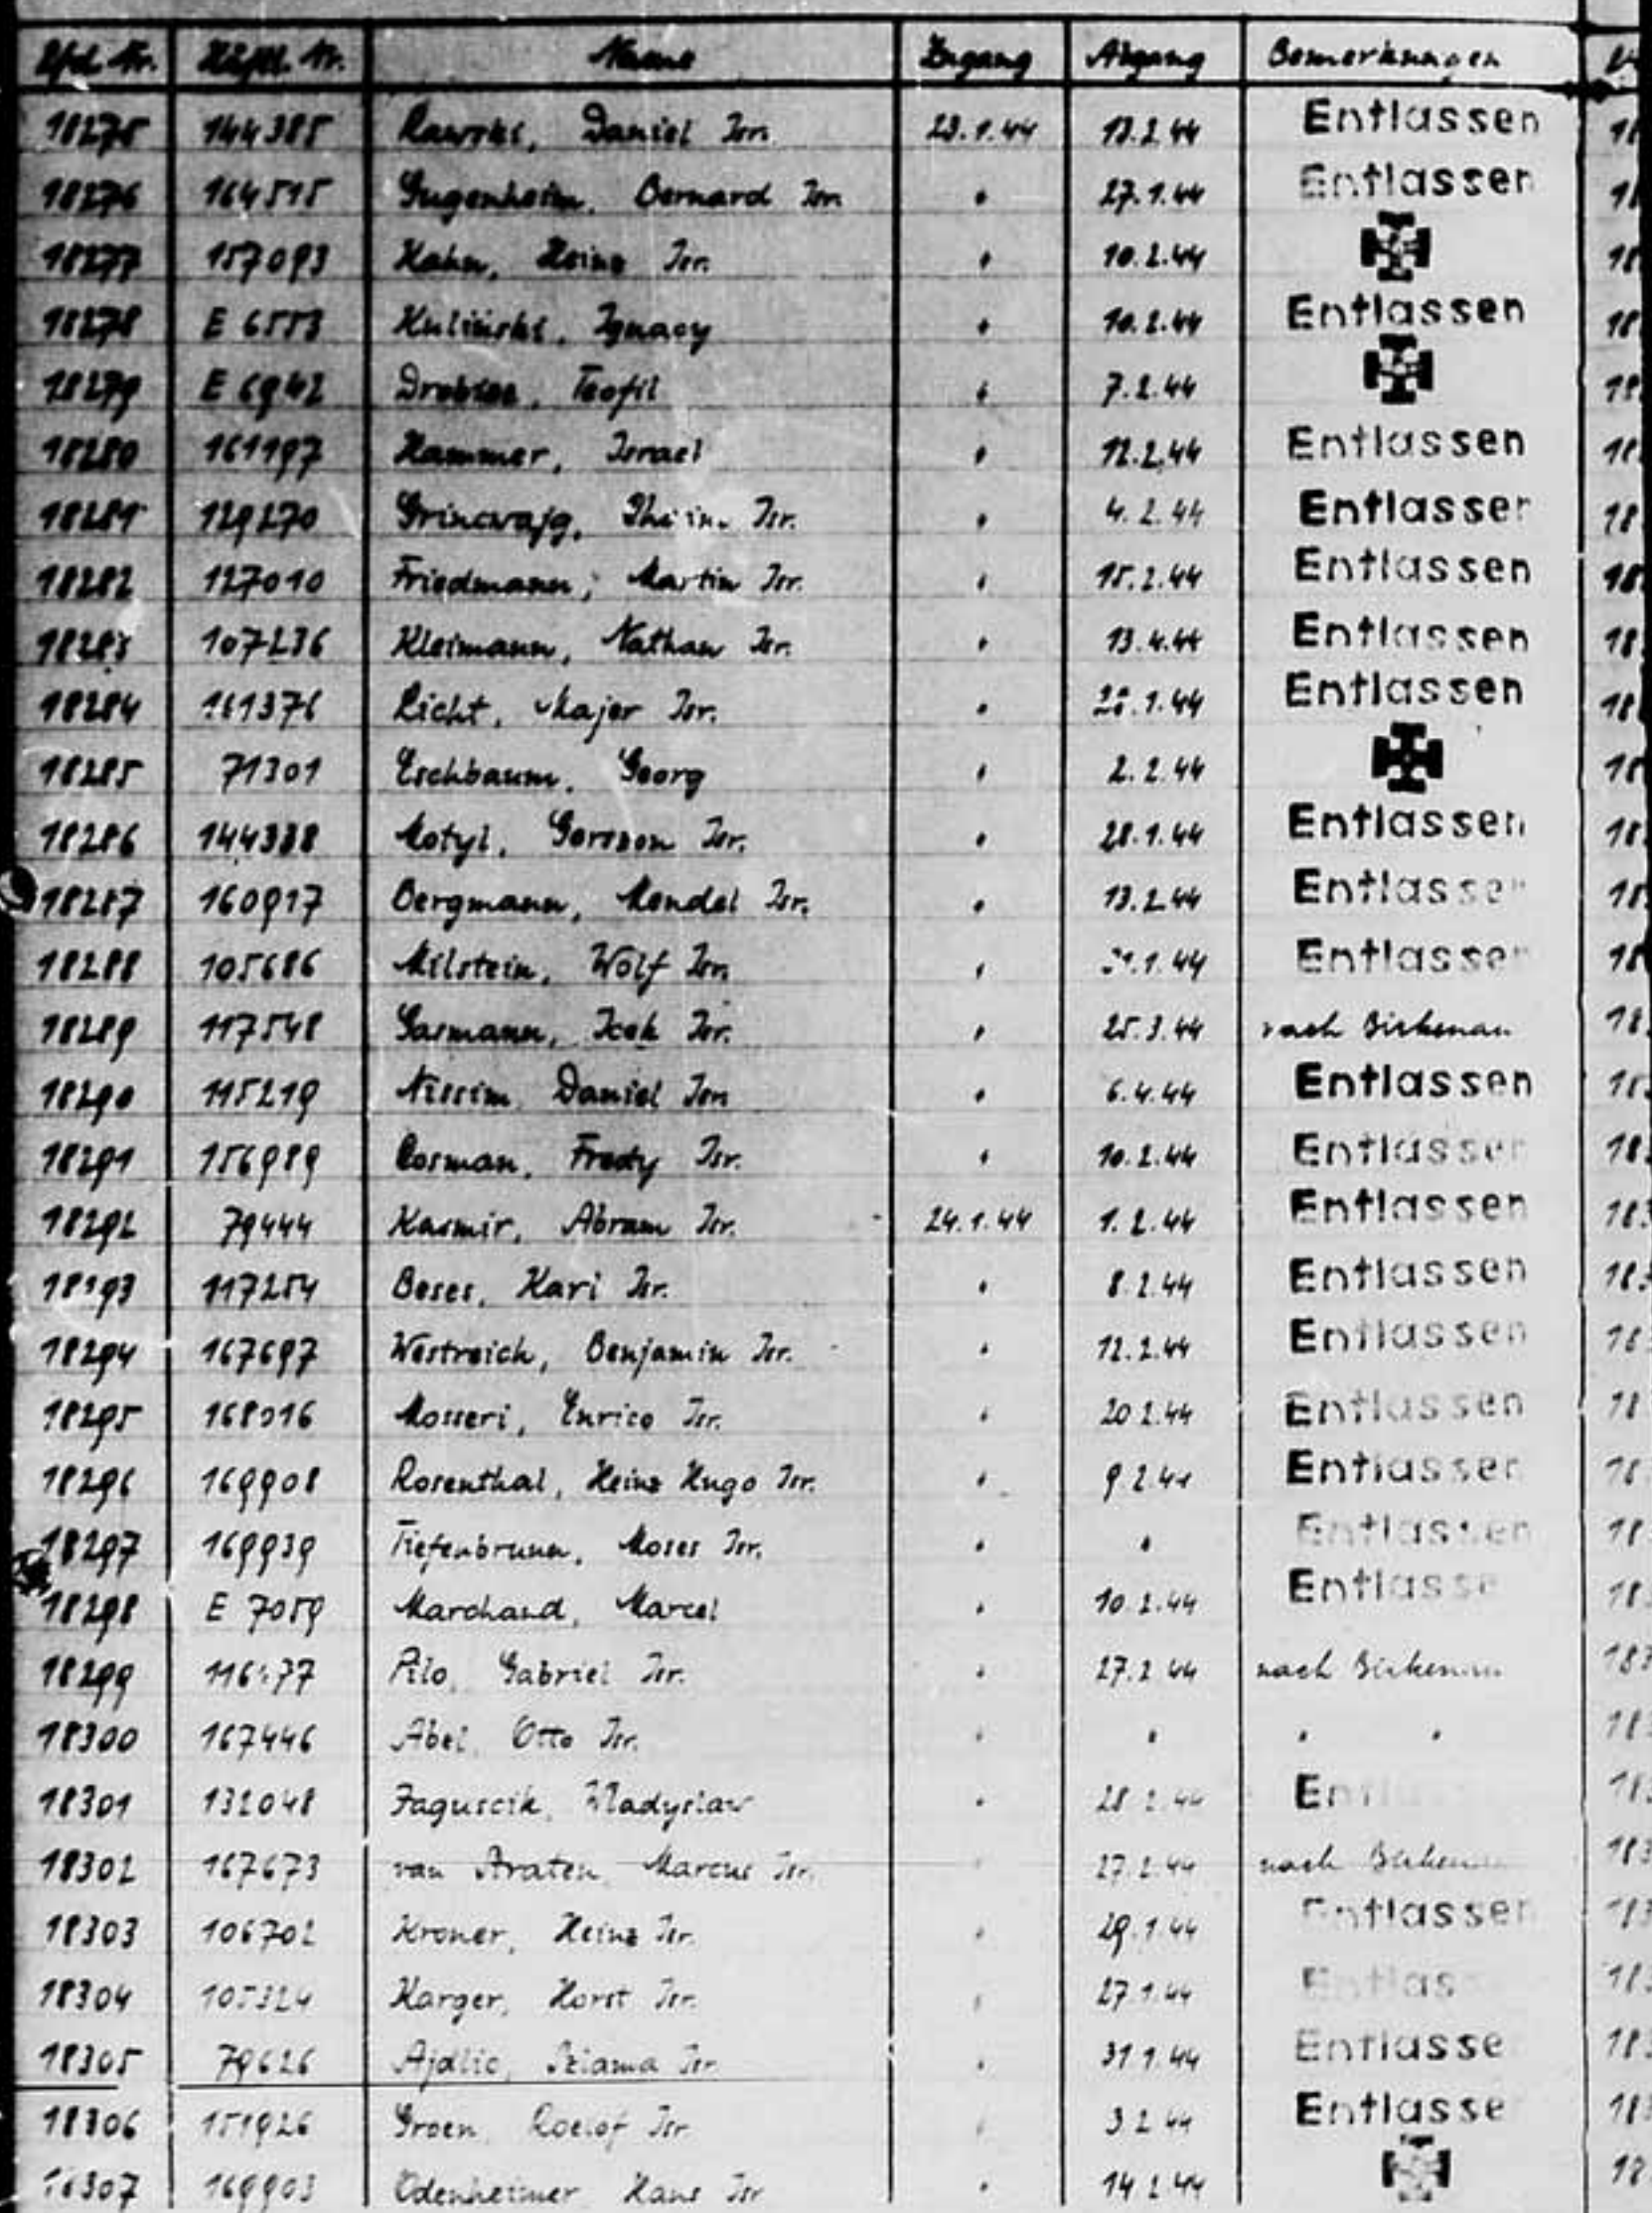 Lfd. Nr. Häftl. Nr. Name Zugang Abgang Bemerkungen
18275 144385 Rawski, Daniel Isr. 23.1.44 13.2.44 Entlassen
18276 164515 Gugenheim, Bernard Isr. " 27.1.44 Entlassen
18277 157093 Kahn, Heinz Isr. " 10.2.44
18278 E 6553 Kuliński, Ignacy " 10.2.44 Entlassen
18279 E 6942 Teofil " 7.2.44
18280 161197 Hammer, Israel " 12.2.44 Entlassen
18281 129270 Grincvajg, Isr. " 4.2.44 Entlassen
18282 127010 Friedmann, Martin Isr. " 15.2.44 Entlassen
18283 107236 Kleimann, Nathan Isr. " 13.4.44 Entlassen
18284 161376 Licht, Majer Isr. " .1.44 Entlassen
18285 71301 Eschbaum, Georg " 2.2.44
18286 144338 Motyl, Gerszon Isr. " 28.1.44 Entlassen
18287 160917 Bergmann, Mendel Isr. " 13.2.44 Entlassen
18288 105686 Milstein, Wolf Isr. " .1.44 Entlassen
18289 117548 Gasmann, Icek Isr. " 25.3.44 nach Birkenau
18290 115219 Nissim, Daniel Isr. " 6.4.44 Entlassen
18291 156989 Cosman, Fredy Isr. " 10.2.44 Entlassen
18292 79444 Kasmir, Abram Isr. 24.1.44 1.2.44 Entlassen
18293 117254 Beses, Kari Isr. " 8.2.44 Entlassen
18294 167697 Westreich, Benjamin Isr. " 12.2.44 Entlassen
18295 168016 Mosseri, Enrico Isr. " 20.2.44 Entlassen
18296 169908 Rosenthal, Heinz Hugo Isr. " 9.2.44 Entlassen
18297 169939 Tiefenbrunn, Moses Isr. " " Entlassen
18298 E 7059 Marchand, Marcel " 10.2.44 Entlassen
18299 Pilo, Gabriel Isr. " 27.2.44 nach Birkenau
18300 167446 Abel, Otto Isr. " " " "
18301 132048 Jaguscik, Wladyslaw " 28.2.44 Ent
18302 167673 van Straten, Marcus Isr. " 27.2.44 nach Birkenau
18303 106702 Kroner, Heinz Isr. " 29.1.44 Entlassen
18304 105324 Karger, Horst Isr. " 27.1.44 Entlas
18305 79626 Ajdlic, Szlama Isr. " 31.1.44 Entlasse
18306 151926 Groen, Roelof Isr. " 3.2.44 Entlasse
18307 169903 Odenheimer, Hans Isr. " 14.2.44